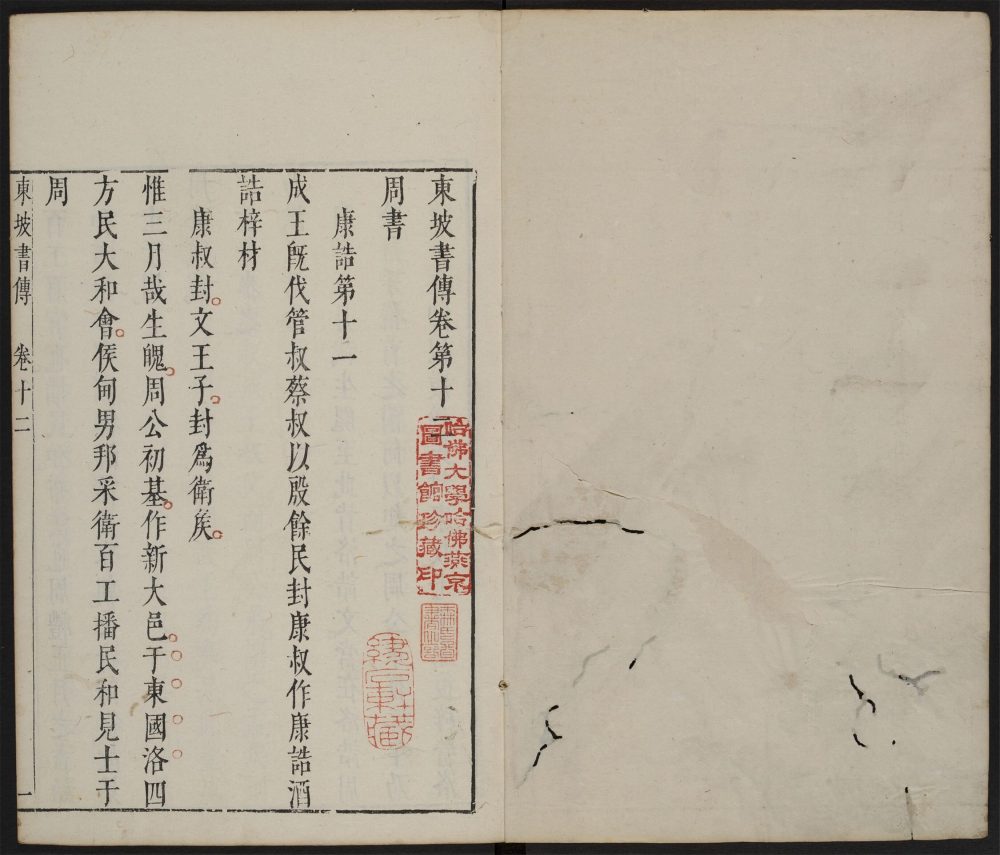 東坡書傳卷第十二
周書
康誥第十一
成王既伐管叔蔡叔以殷餘民封康叔作康誥酒
誥梓材
康叔封文王子封爲衛矦
惟三月哉生魄周公初基作新大邑于東國洛四
方民大和會侯甸男邦采衛百工播民和見士于
周
東坡書傳 卷十二 一
哈佛大學哈佛燕京
圖書館珍藏印